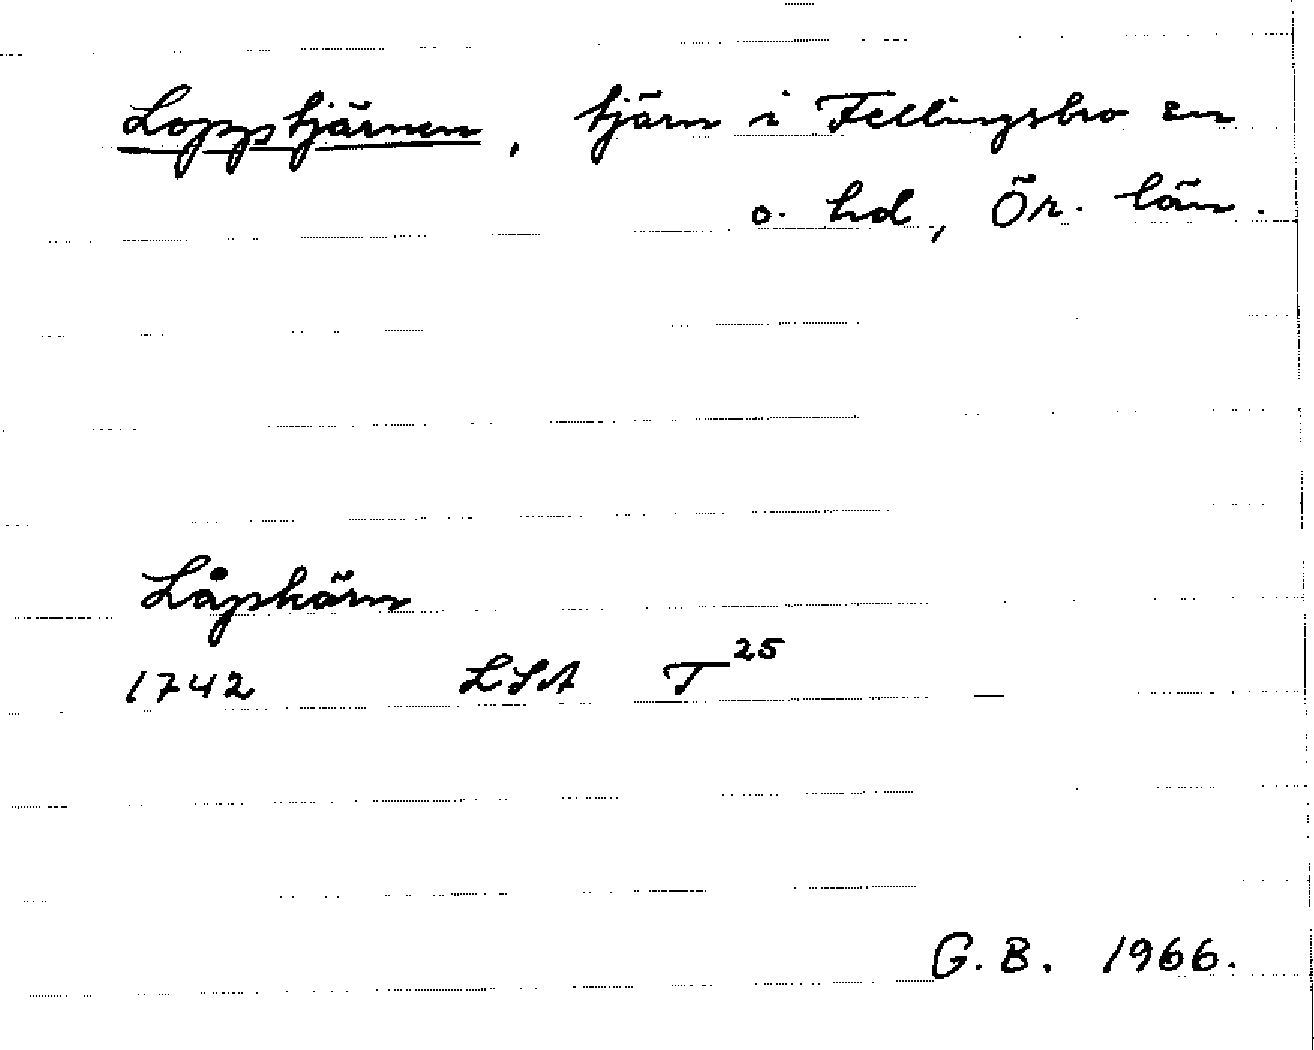 Lopptjärnen, tjärn i Fellingsbro sn
o. hd, Ör. län.
Låpkärn
1742 LSA T 25 —
G.B. 1966.